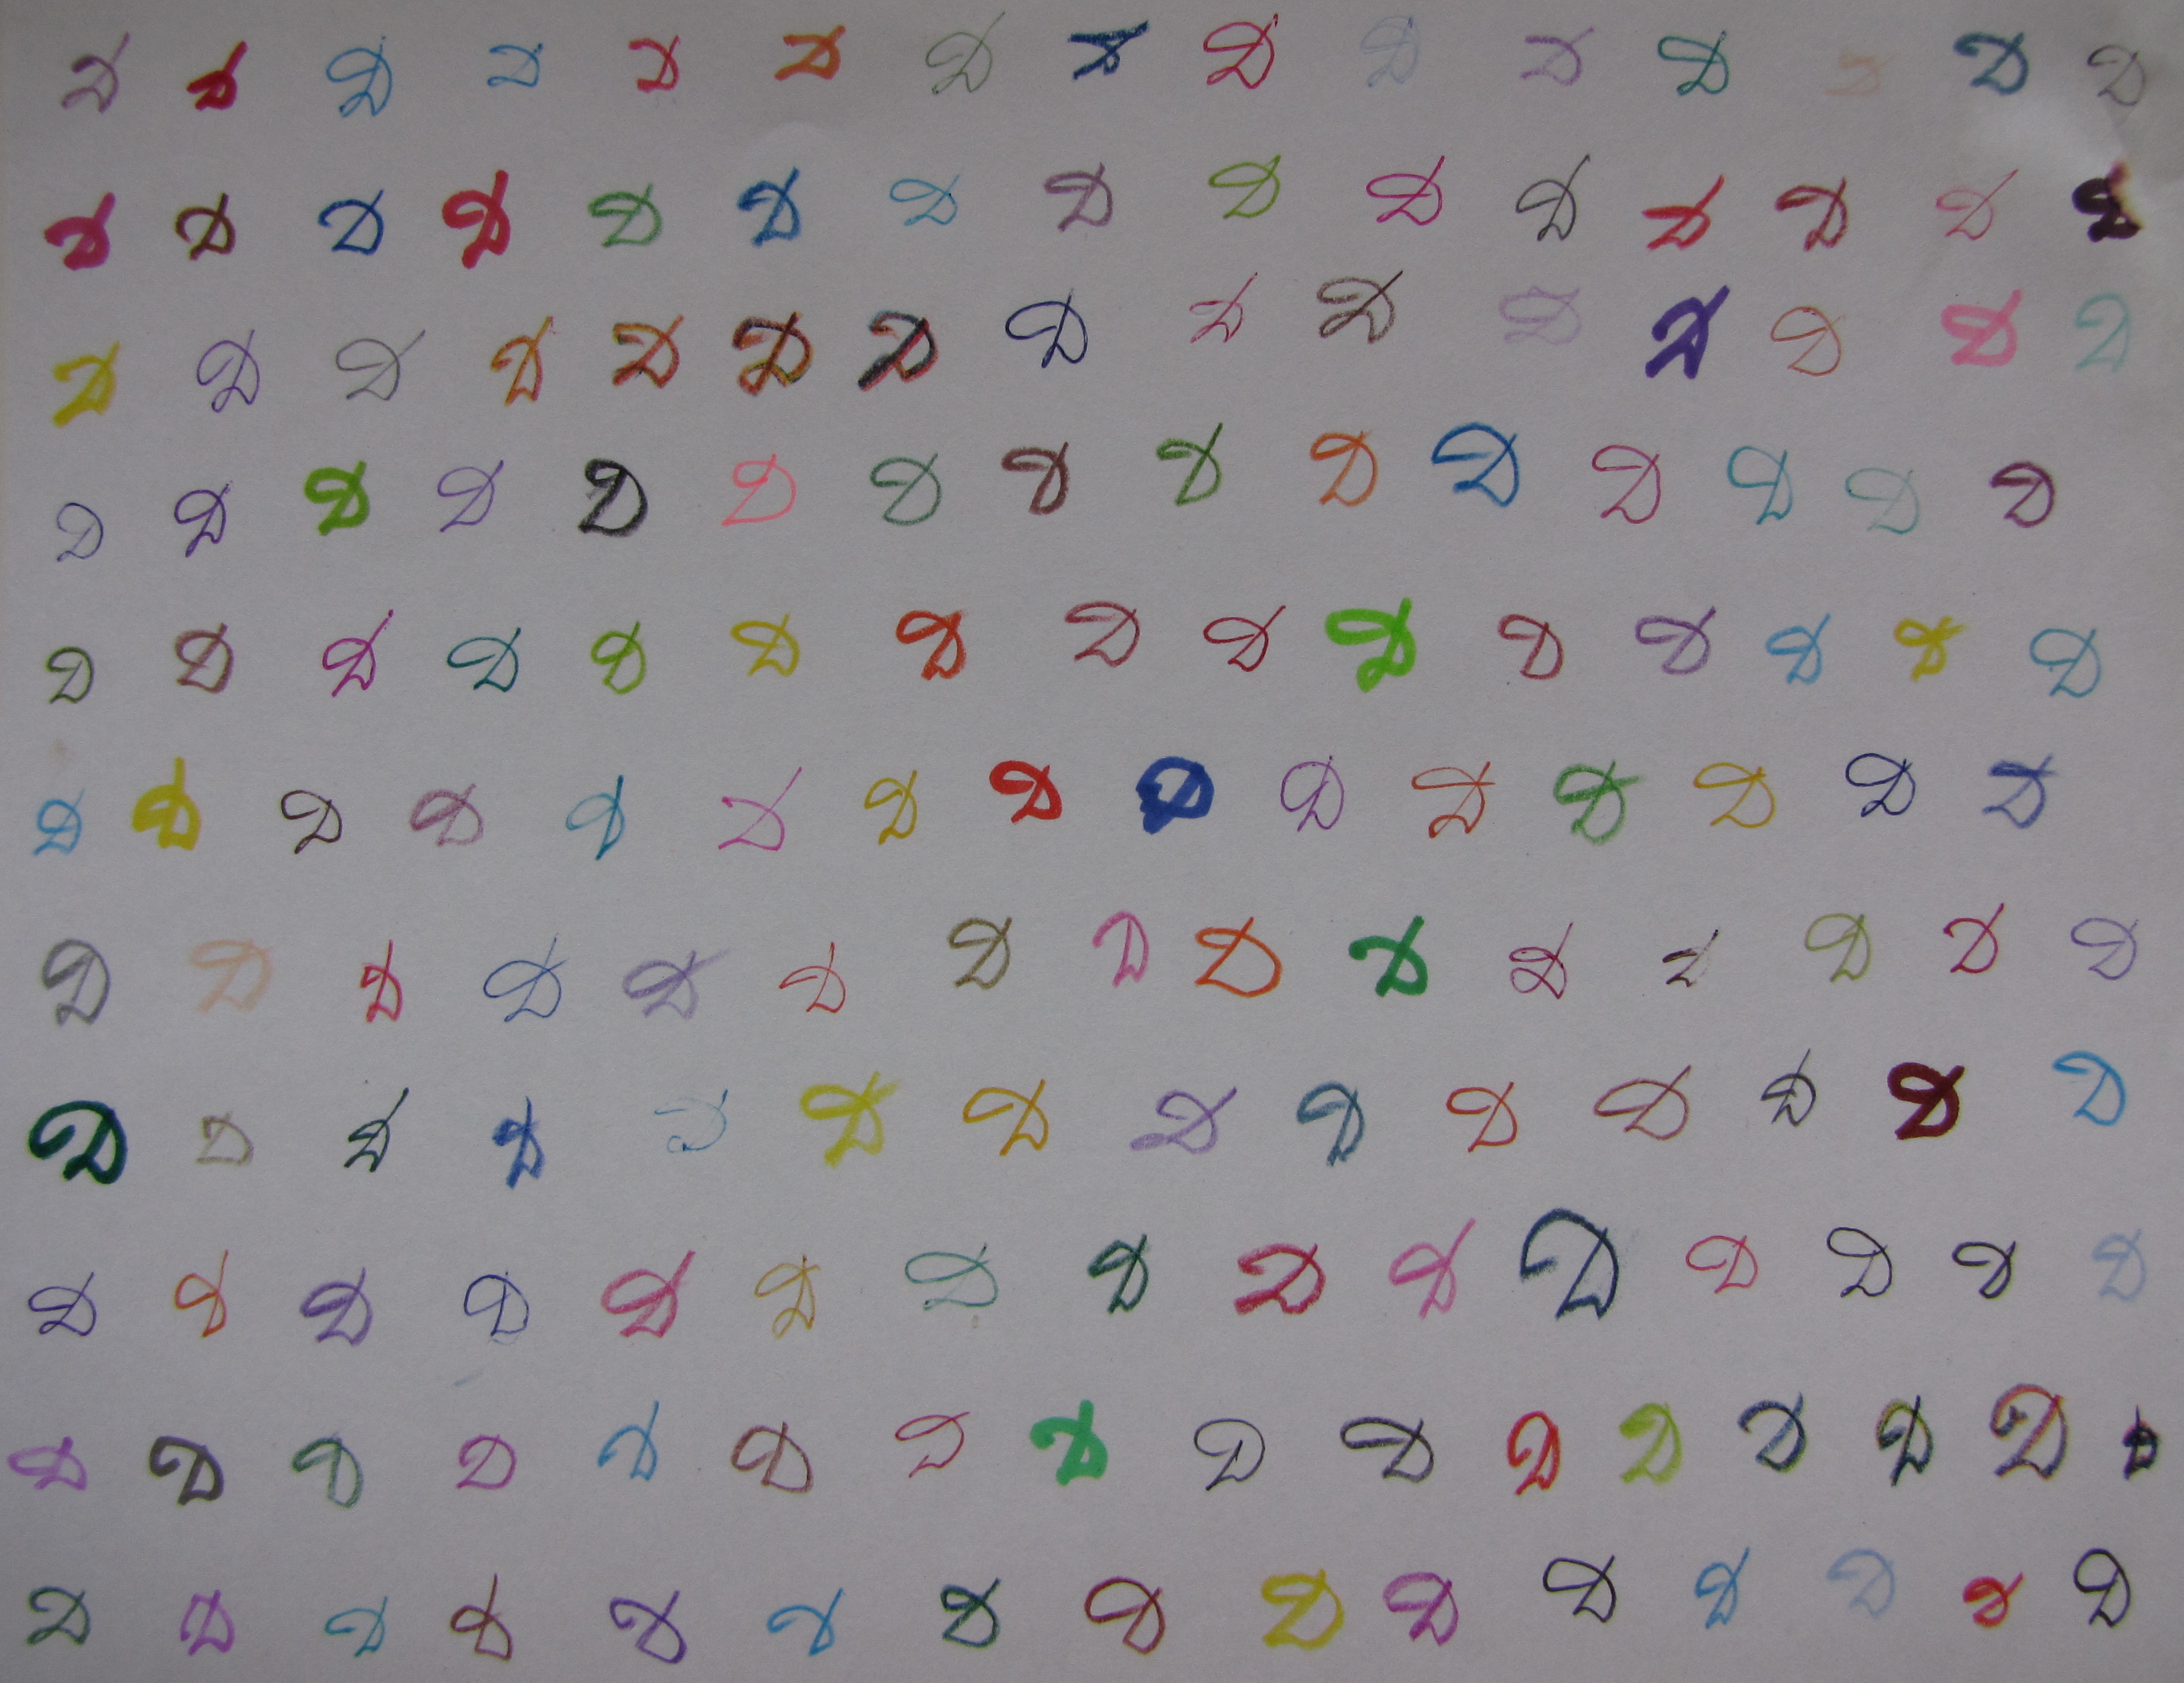 D D D D D D D D D D D D D D D
D D D D D D D D D D D D D D D
D D D D D D D D D D D D D D D
D D D D D D D D D D D D D D D
D D D D D D D D D D D D D D D
D D D D D D D D D D D D D D D
D D D D D D D D D D D D D D D
D D D D D D D D D D D D D D
D D D D D D D D D D D D D D D
D D D D D D D D D D D D D D D D
D D D D D D D D D D D D D D D